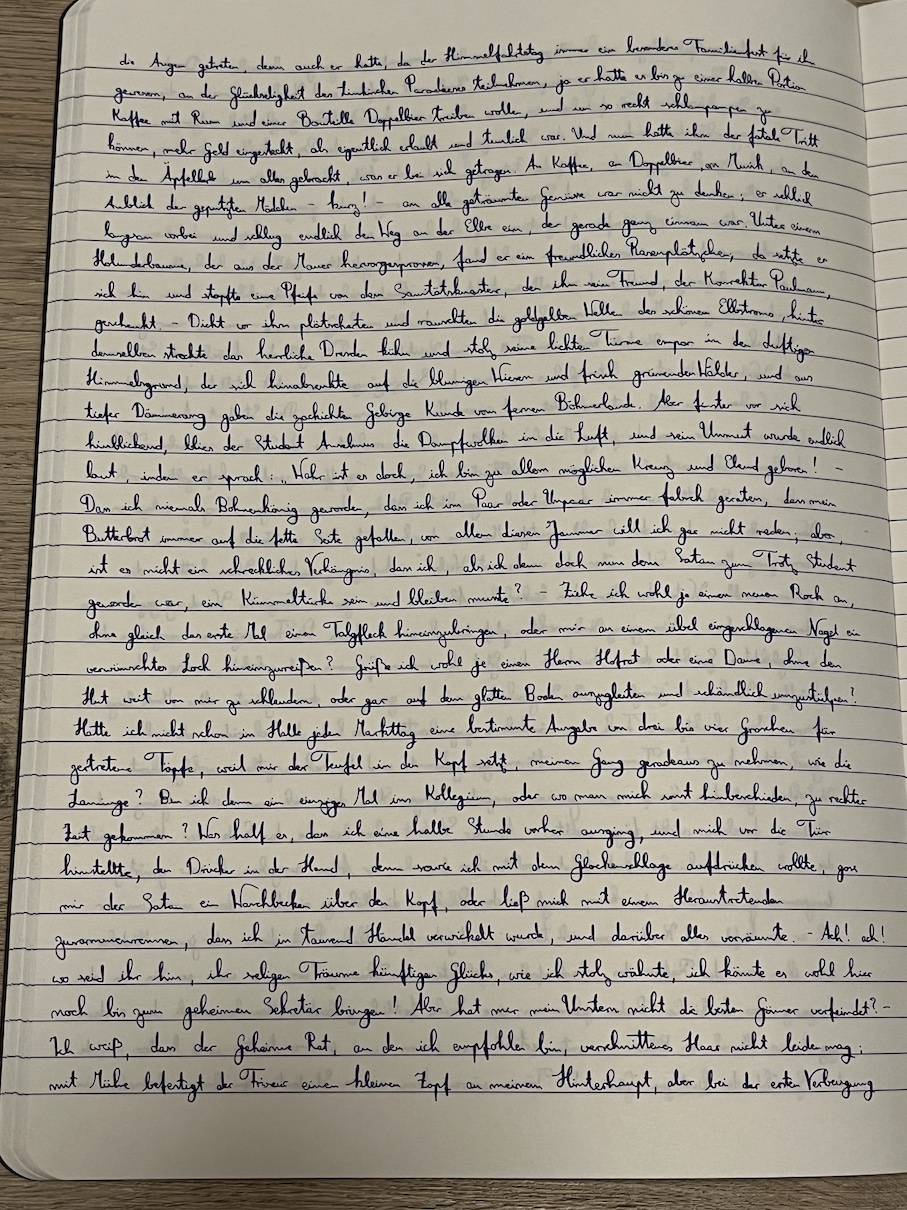 die Augen getreten, denn auch er hatte, da der Himmelfahrtstag immer ein besonderes Familienfest für ihn
gewesen, an der Glückseligkeit des Linkischen Paradieses teilnehmen, ja er hatte es bis zu einer halben Portion
Kaffee mit Rum und einer Bouteille Doppelbier treiben wollen, und um so recht schlampampen zu
können, mehr Geld eingesteckt, als eigentlich erlaubt und tunlich war. Und nun hatte ihn der fatale Tritt
in den Äpfelkorb um alles gebracht, was er bei sich getragen. An Kaffee, an Doppelbier, an Musik, an den
Anblick der geputzten Mädchen - kurz! - an alle geträumten Genüsse war nicht zu denken; er schlich
langsam vorbei und schlug endlich den Weg an der Elbe ein, der gerade ganz einsam war. Unter einem
Holunderbaume, der aus der Mauer hervorgesprossen, fand er ein freundliches Rasenplätzchen, da setzte er
sich hin und stopfte eine Pfeife von dem Sanitätsknaster, den ihm sein Freund, der Konrektor Paulmann,
geschenkt - Dicht vor ihm plätscherten und rauschten die goldgelben Wellen des schönen Elbstroms, hinter
demselben streckte das herrliche Dresden kühn und stolz seine lichten Türme empor in den duftigen
Himmelsgrund, der sich hinabsenkte auf die blumigen Wiesen und frisch grünenden Wälder, und aus
tiefer Dämmerung gaben die zackichten Gebirge Kunde vom fernen Böhmerlande. Aber finster vor sich
hinblickend, blies der Student Anselmus die Dampfwolken in die Luft, und sein Unmut wurde endlich
laut, indem er sprach: „Wahr ist es doch, ich bin zu allem möglichen Kreuz und Elend geboren! -
Das ich niemals Bohnenkönig geworden, dass ich im Paar oder Unpaar immer falsch geraten, dass mein
Butterbrot immer auf die fette Seite gefallen, von allem diesen Jammer will ich gar nicht reden; aber,
ist es nicht ein schreckliches Verhängnis, dass ich, als ich denn doch nun dem Satan zum Trotz Student
geworden war, ein Kümmeltürke sein und bleiben musste? - Ziehe ich wohl je einen neuen Rock an,
ohne gleich das erste Mal einen Talgfleck hineinzubringen, oder mir an einem übel eingeschlagenen Nagel ein
verwünschtes Loch hineinzureißen? Grüße ich wohl je einen Herrn Hofrat oder eine Dame, ohne den
Hut weit von mir zu schleudern, oder gar auf dem glatten Boden auszugleiten und schändlich umzustülpen?
Hatte ich nicht schon in Halle jeden Markttag eine bestimmte Ausgabe von drei bis vier Groschen für
zertretene Töpfe, weil mir der Teufel in den Kopf setzt, meinen Gang geradeaus zu nehmen, wie die
Laminge? Bin ich denn ein einziges Mal ins Kollegium, oder wo man mich sonst hinbeschieden, zu rechter
Zeit gekommen? Was half es, dass ich eine halbe Stunde vorher ausging, und mich vor die Tür
hinstellte, den Drücker in der Hand, denn sowie ich mit dem Glockenschlage aufdrücken wollte, goss
mir der Satan ein Waschbecken über den Kopf, oder ließ mich mit einem Heraustretenden
zusammenrennen, dass ich in tausend Händel verwickelt wurde, und darüber alles versäumte. - Ah! ach!
wo seid ihr hin, ihr seligen Träume künftigen Glücks, wie ich stolz wähnte, ich könnte es wohl hier
noch bis zum geheimen Sekretär bringen! Aber hat mir mein Unstern nicht die besten Gönner verfeindet? -
Ich weiß, dass der Geheime Rat, an den ich empfohlen bin, verschnittenes Haar nicht leiden mag;
mit Mühe befestigt der Friseur einen kleinen Zopf an meinem Hinterhaupt, aber bei der ersten Verbeugung